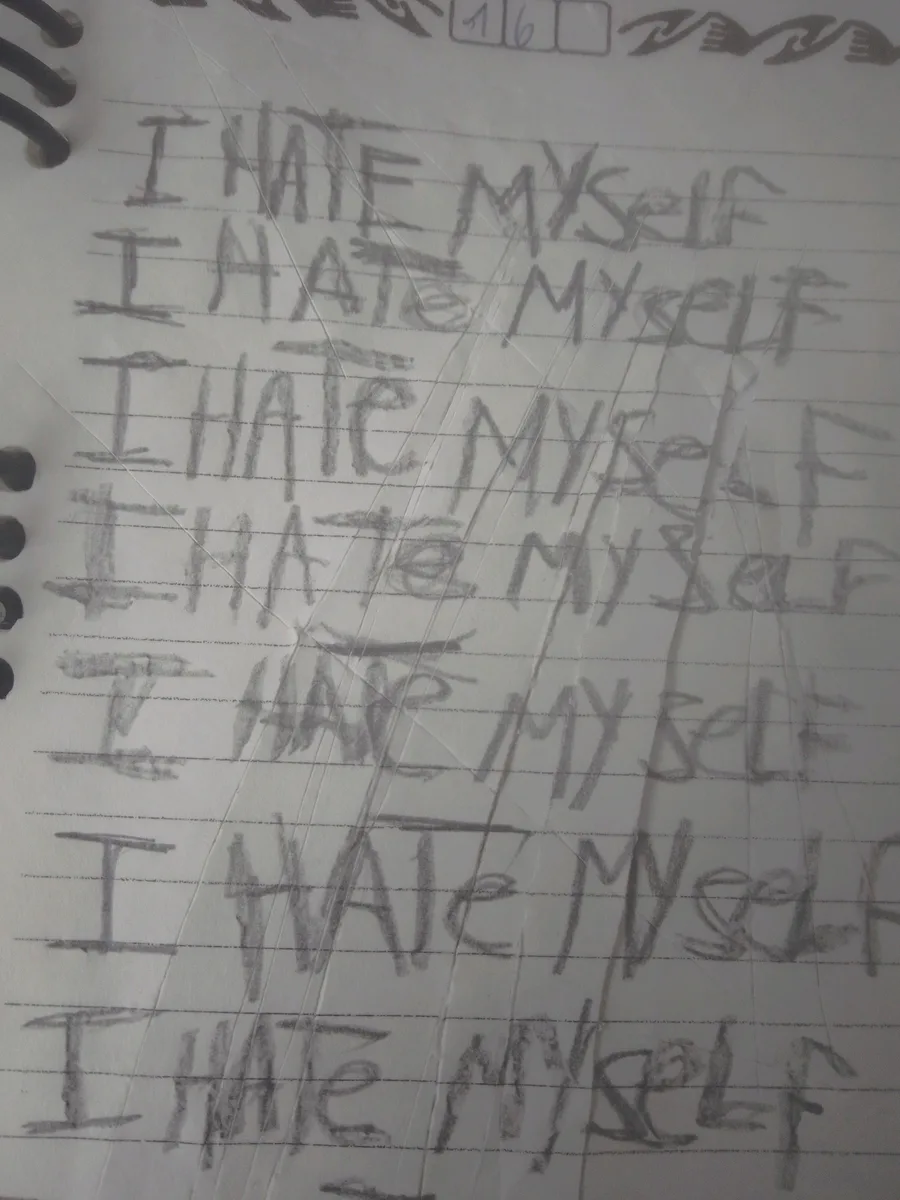 16
I HATE MYSelF
I HATe MYseLF
I HATe MYSeLF
I HATe MYSeLF
I HATe MYSeLF
I HATe MYseLF
I HATe MYSeLF